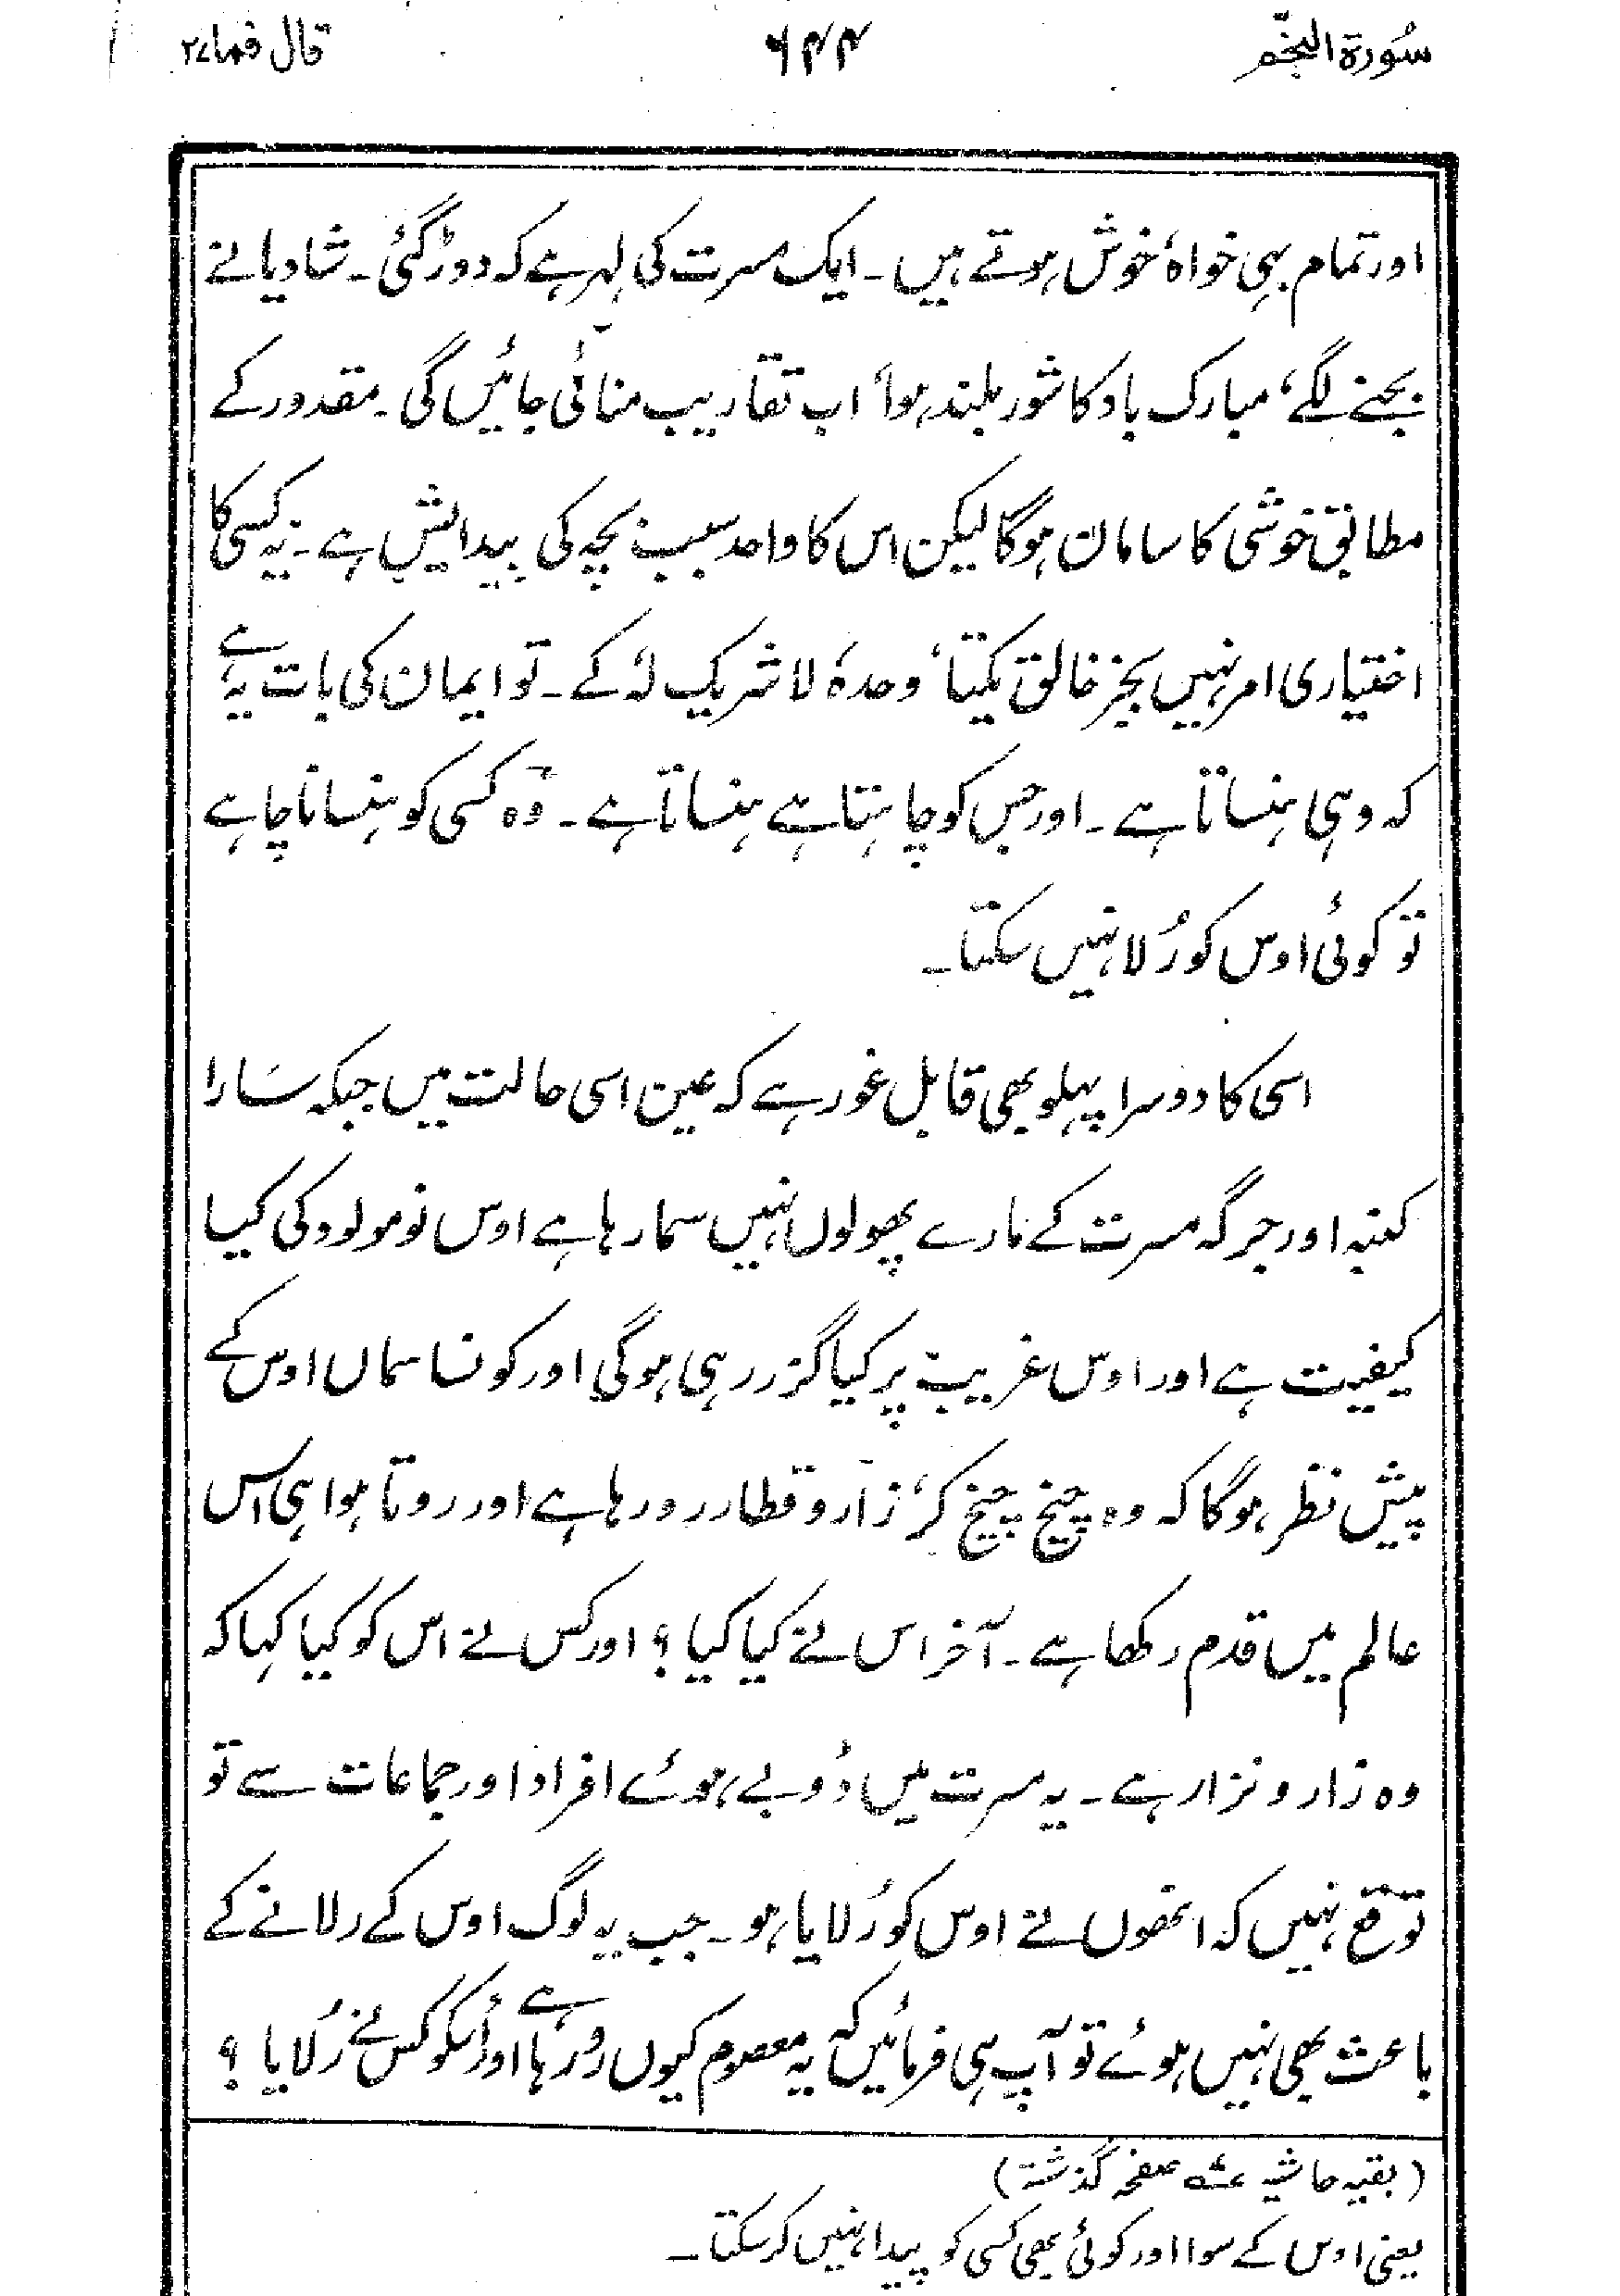 سُورة النجّم ۶۴۴ قال فما ۲۷
اور تمام بہی خواہ خوش ہوتے ہیں ۔ ایک مسرت کی لہر ہے کہ دوڑ گئی ۔ شادیانے
بجنے لگے، مبارک باد کا شور بلند ہوا اب تقاریب منائی جائیں گی ۔ مقدور کے
مطابق خوشی کا سامان ہوگا لیکن اس کا واحد سبب بچہ کی پیدایش ہے ۔ یہ کسی کا
اختیاری امر نہیں بجز خالق یکتا، وحدہٗ لا شریک لہٗ کے ۔ تو ایمان کی بات یہ ہے
کہ وہی ہنساتا ہے ۔ اور جس کو چاہتا ہے ہنساتا ہے ۔ وہ کسی کو ہنسانا چاہے
تو کوئی اوس کو رُلا نہیں سکتا ۔
اسی کا دوسرا پہلو بھی قابل غور ہے کہ عین اسی حالت میں جبکہ سَارا
کنبہ اور جرگہ مسرت کے مارے پھولوں نہیں سما رہا ہے اوس نومولود کی کیا
کیفیت ہے اور اوس غریب پر کیا گزر رہی ہوگی اور کونسا سماں اوس کے
پیش نظر ہوگا کہ وہ چیخ چیخ کر، زار و قطار رو رہا ہے اور روتا ہوا ہی اس
عالم میں قدم رکھا ہے ۔ آخر اس نے کیا کیا ؟ اور کس نے اس کو کیا کہا کہ
وہ زار و نزار ہے ۔ یہ مسرت میں ڈوبے ہوئے افراد اور جماعات سے تو
توقع نہیں کہ انھوں نے اوس کو رُلایا ہو ۔ جب یہ لوگ اوس کے رلانے کے
باعث بھی نہیں ہوئے تو آپ ہی فرمائیں کہ یہ معصوم کیوں رو رہا ہے اور اُسکو کس نے رُلایا ؟
(بقیہ حاشیہ صفحہ گذشتہ)
یعنی اوس کے سوا اور کوئی بھی کسی کو پیدا نہیں کر سکتا ۔